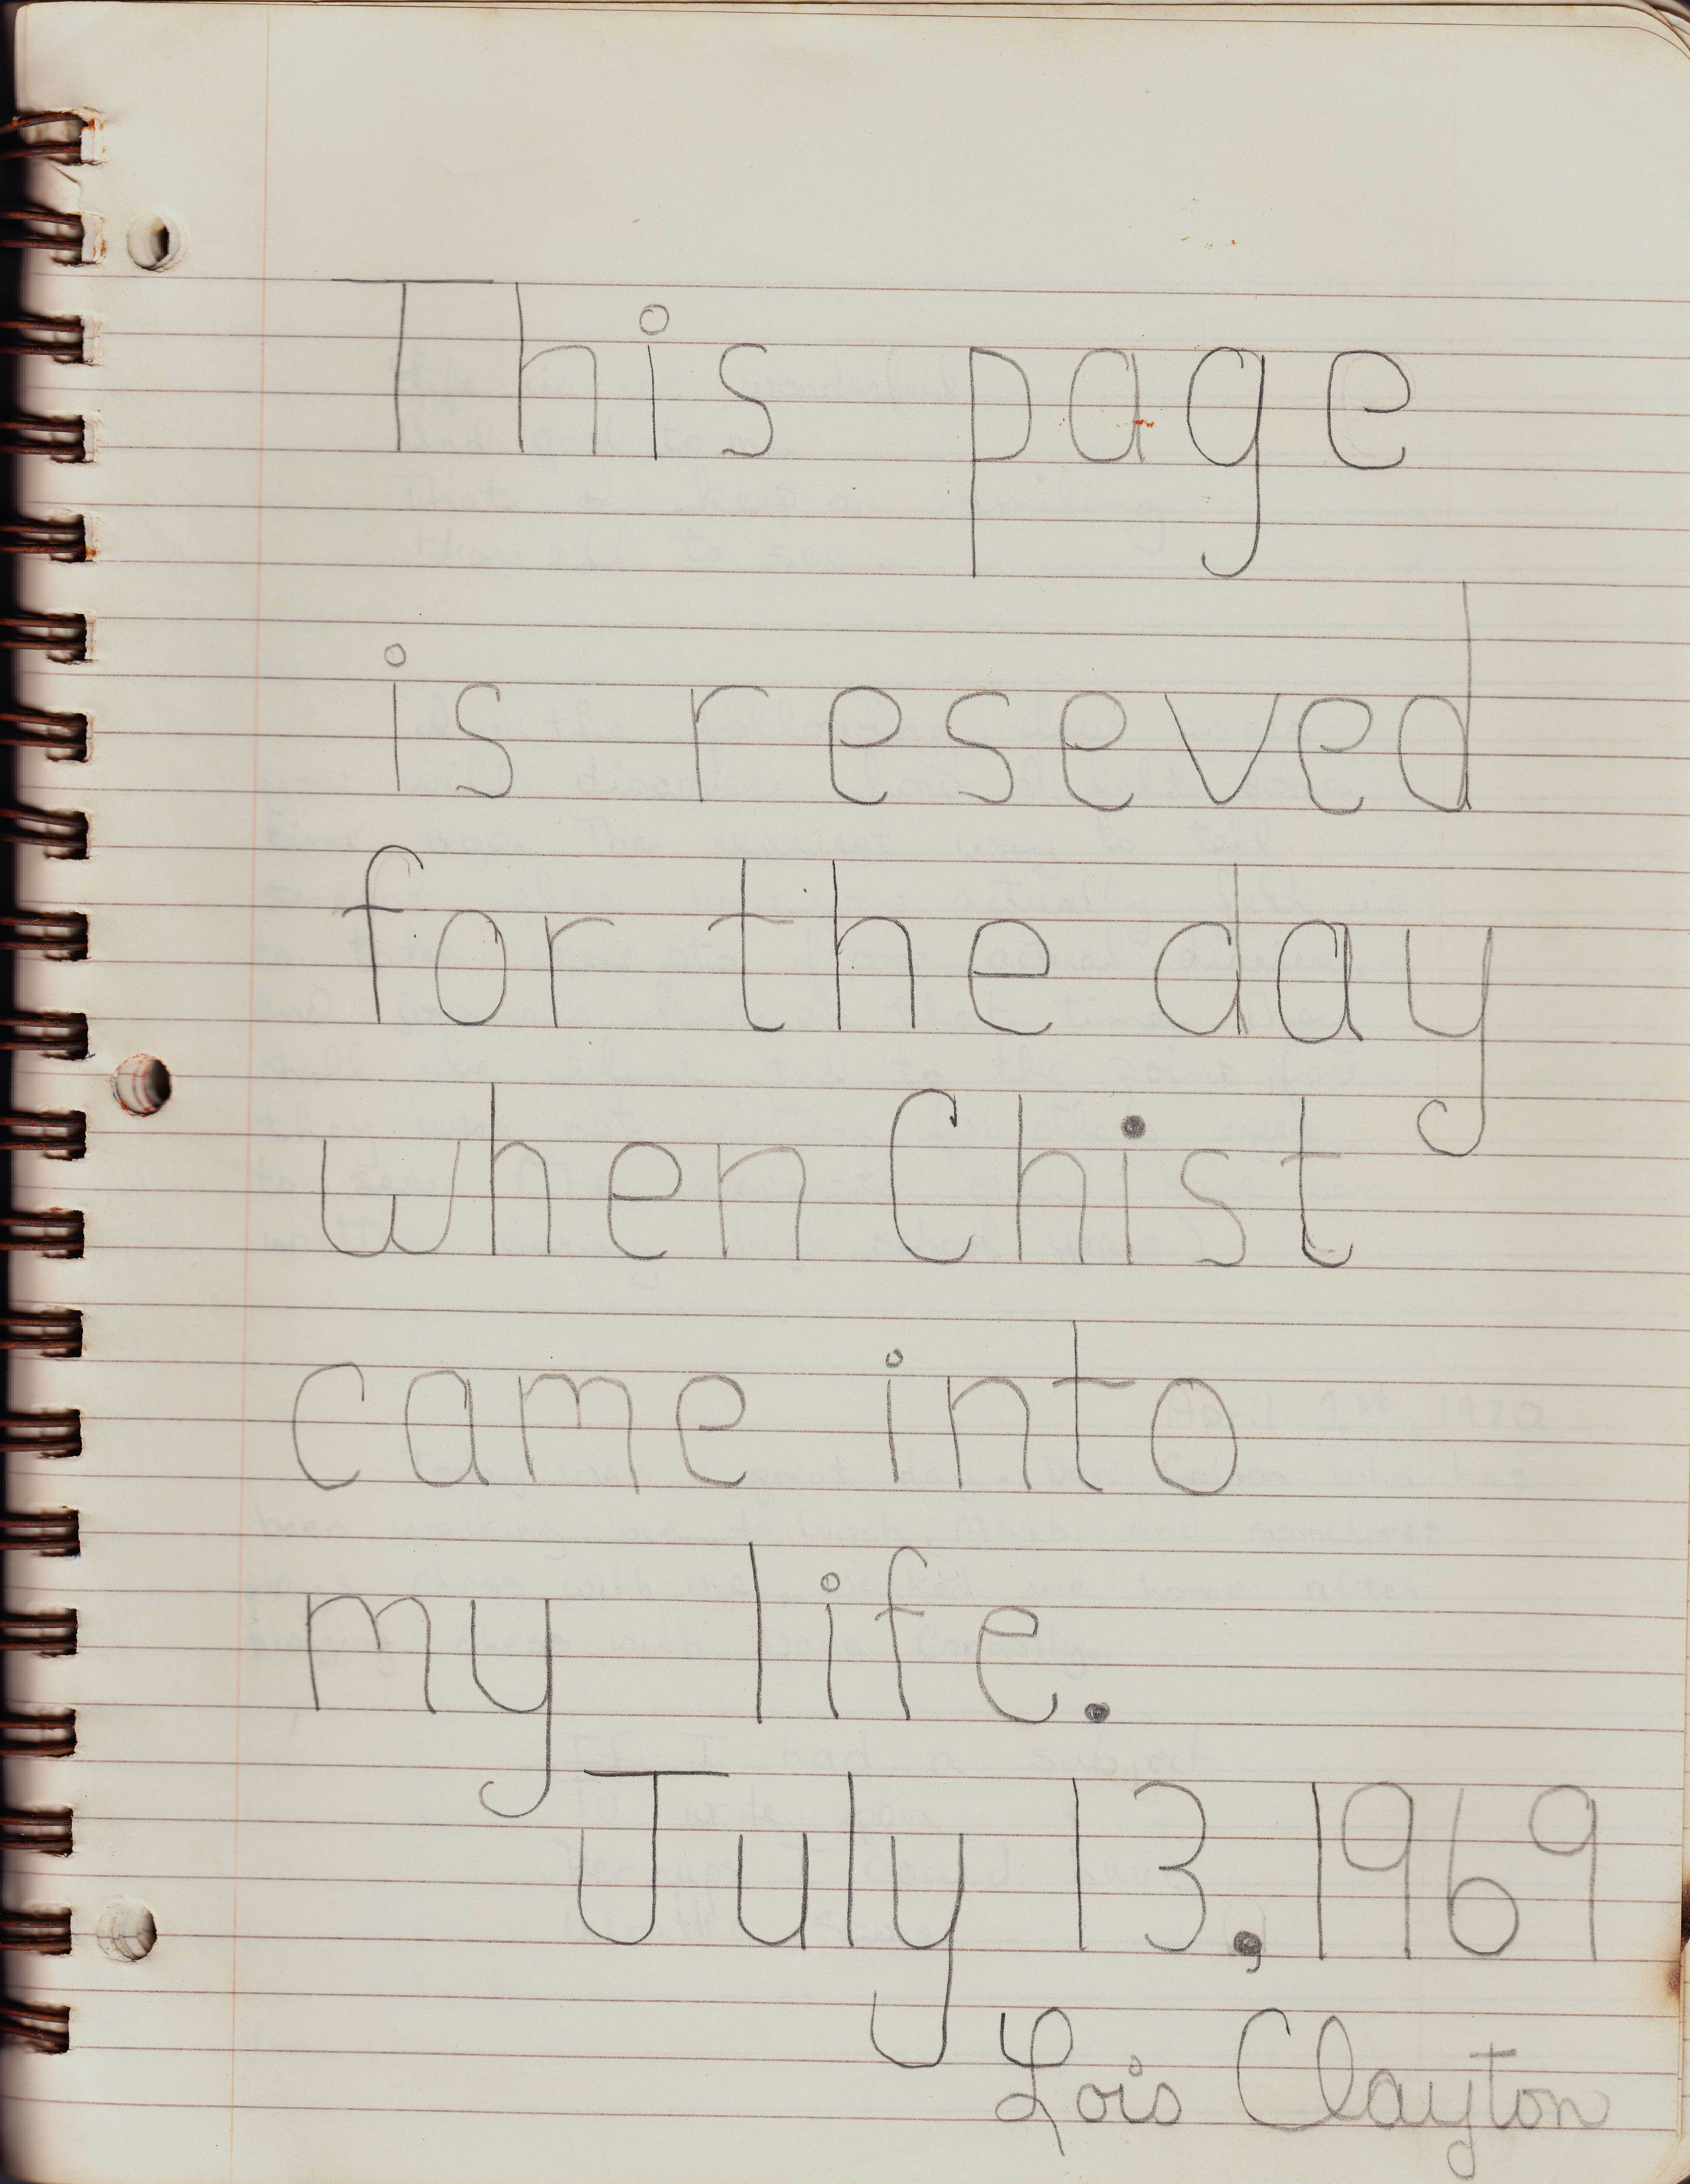 This page
is reseved
for the day
when Chist
came into
my life.
July 13, 1969
Lois Clayton